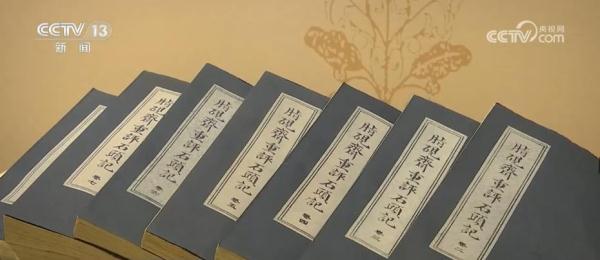 CCTV 13
新闻
央视网
CCTV.com
脂硯齋重評石頭記 卷七
脂硯齋重評石頭記
脂硯齋重評石頭記 卷五
脂硯齋重評石頭記 卷四
脂硯齋重評石頭記 卷三
脂硯齋重評石頭記 卷二